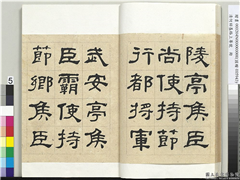 陵亭侯臣
尚使持節
行都將軍
武安亭侯
臣霸使持
節鄉侯臣
5